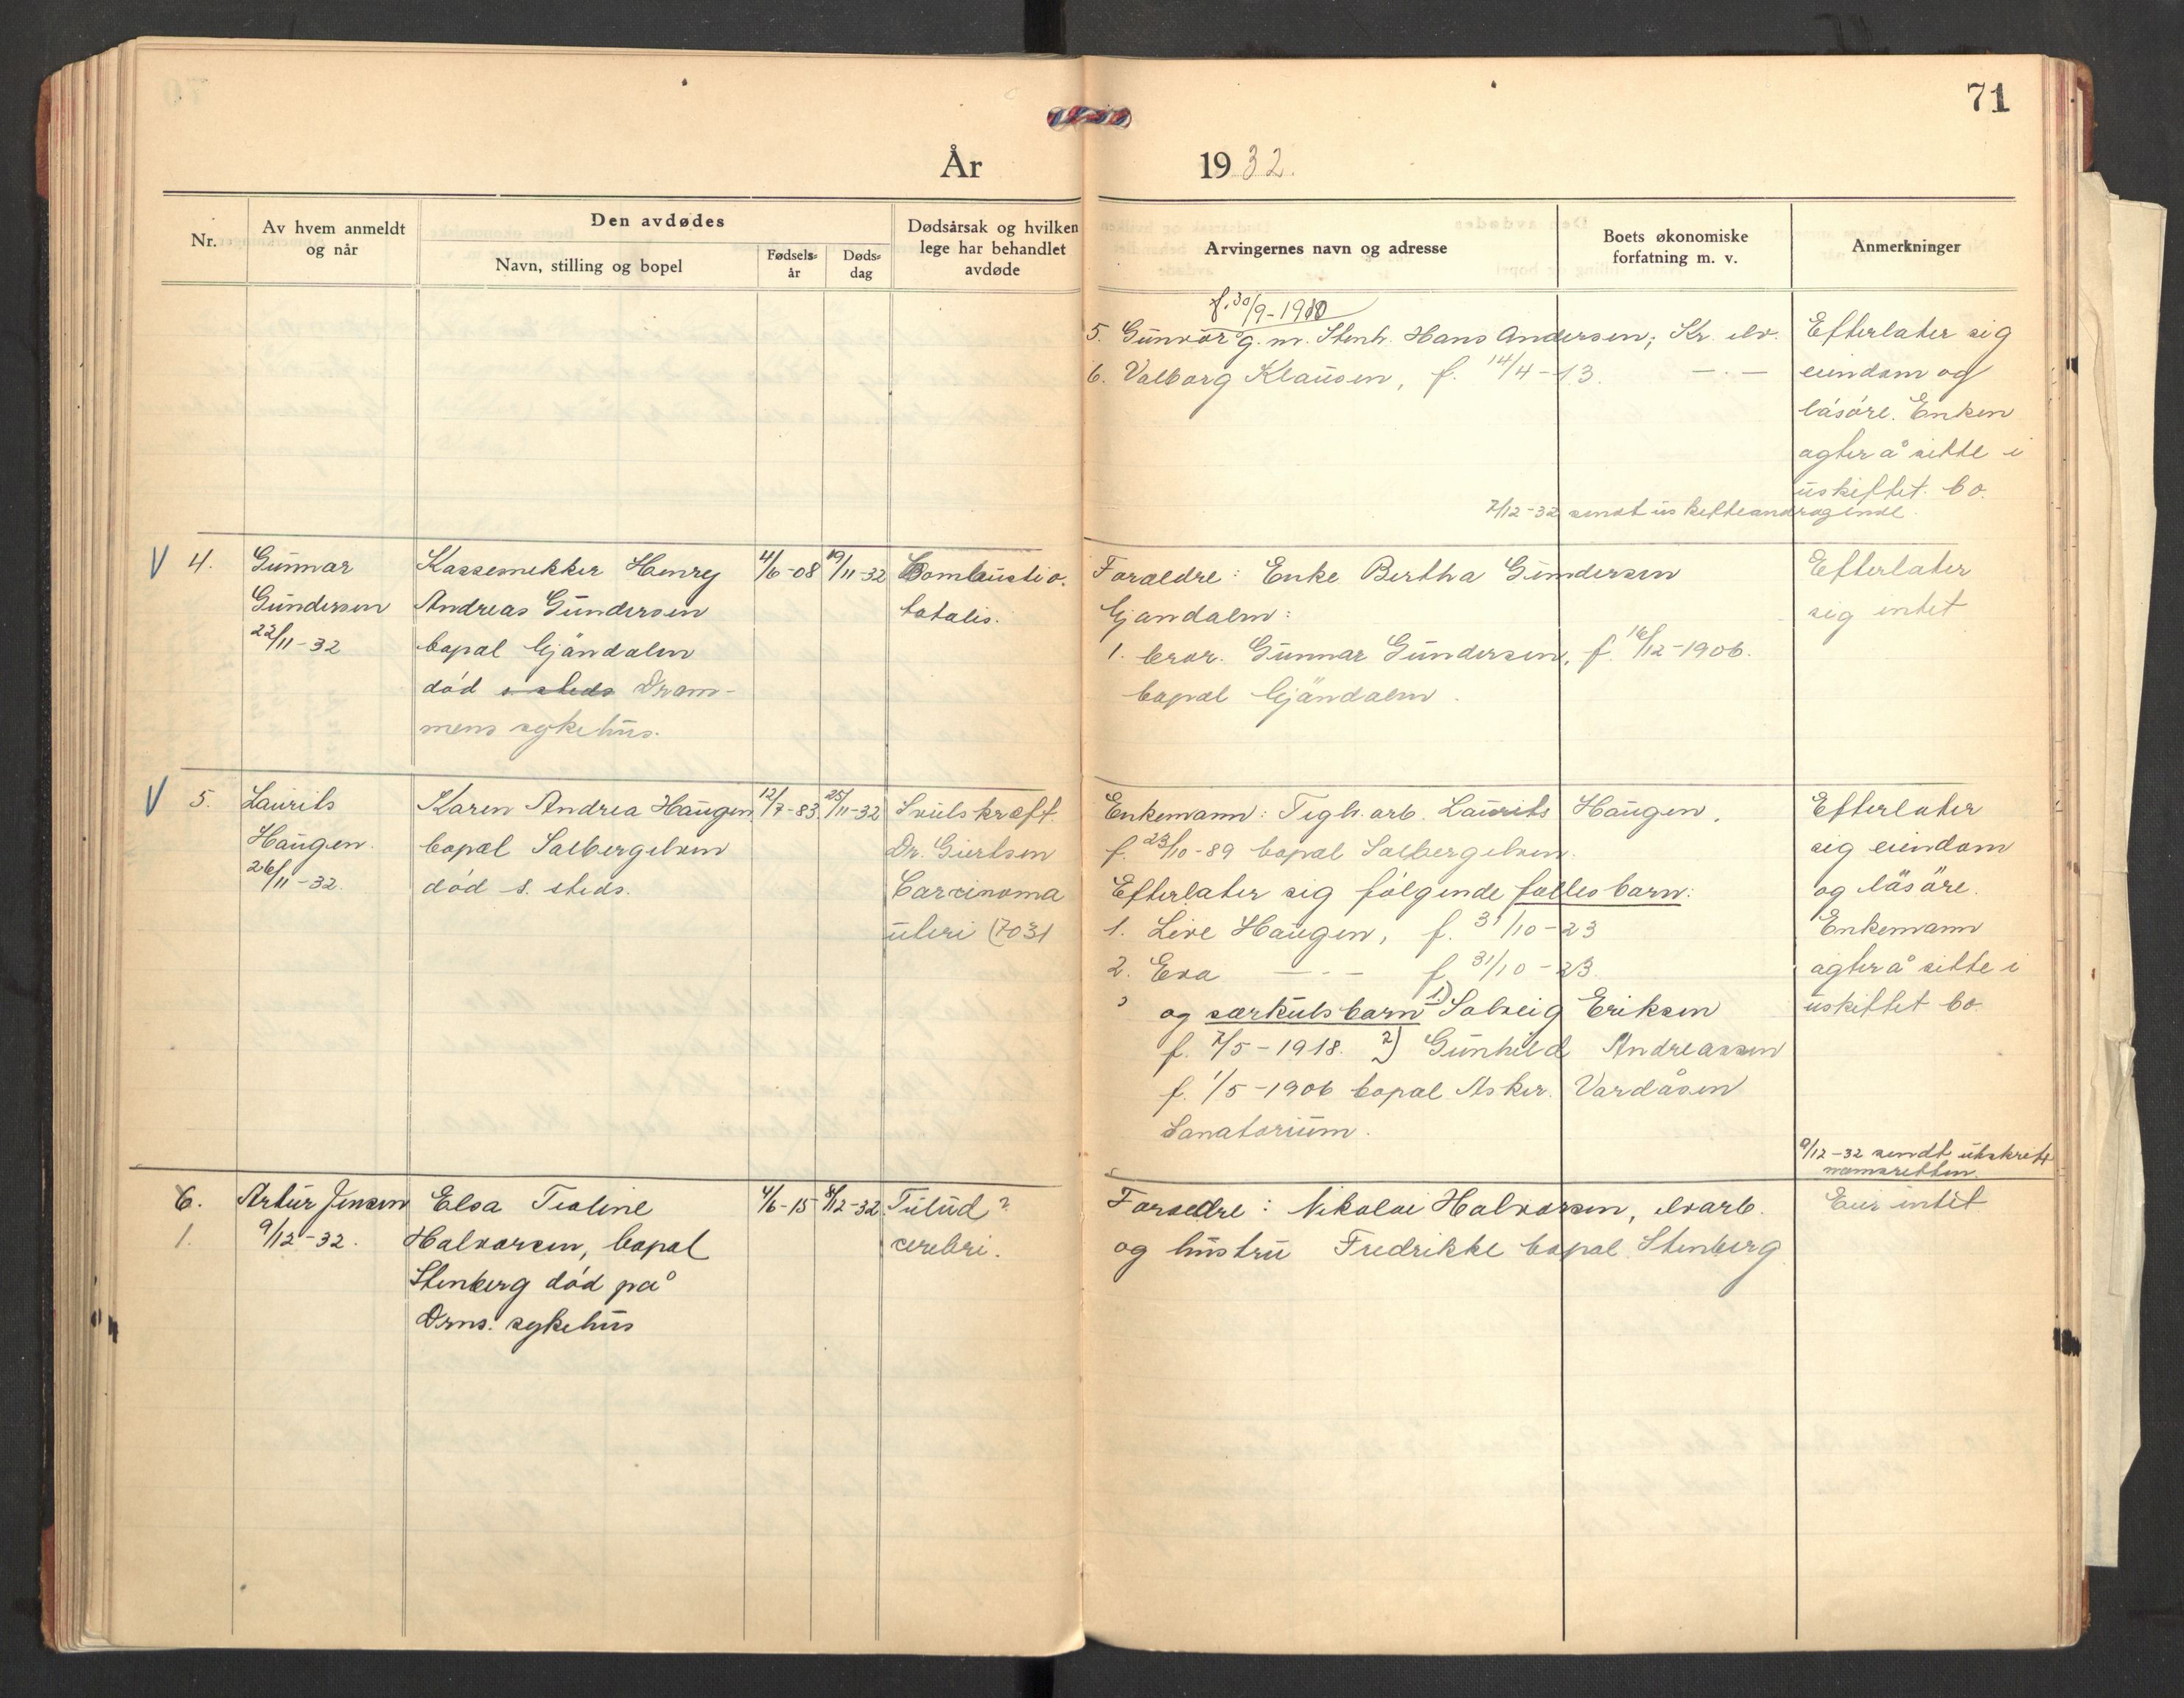 71
År 1932.
Nr.
Av hvem anmeldt
og når
Den avdødes
Navn, stilling og bopel
Fødsels-
år
Døds-
dag
Dødsårsak og hvilken
lege har behandlet
avdøde
Arvingernes navn og adresse
Boets økonomiske
forfatning m. v.
Anmerkninger
f. 30/9-1910
5. Gunvor g. m. Stenh. Hans Andersen; Kr. elv.
6. Valborg Klausen, f. 14/4-13. —·—
Efterlater sig
eiendom og
løsøre. Enken
agter å sitte i
uskiftet bo.
7/12-32 sendt uskifteandragende.
4.
Gunnar
Gundersen
22/11-32
Kassesnekker Henry
Andreas Gundersen
bopæl Gjøndalen
død s. steds Dram-
mens sykehus.
4/6-08
19/11-32
Combustio.
totalis.
Foreldre: Enke Bertha Gundersen
Gjøndalen:
1. bror. Gunnar Gundersen, f. 16/12-1906.
bopæl Gjøndalen.
Efterlater
sig intet
5.
Laurits
Haugen.
26/11-32.
Karen Andrea Haugen
bopæl Solbergelven
død s. steds.
12/7-83
25/11-32
Svulskræft.
Dr. Giertsen
Carcinoma
uteri (703)
Enkemann: Teglv. arb. Laurits Haugen.
f. 23/10-89 bopæl Solbergelven.
Efterlater sig følgende felles barn:
1. Live Haugen, f. 31/10-23
2. Eva —·— f. 31/10-23.
og særkulsbarn 1) Solveig Eriksen
f. 7/5-1918. 2) Gunhild Andreassen
f. 1/5-1906 bopæl Asker. Vardåsen
Sanatorium.
Efterlater
sig eiendom
og løsøre.
Enkemann
agter å sitte i
uskiftet bo.
9/12-32 sendt utskrift
namsretten.
6.
1.
Artur Jensen
9/12-32.
Elsa Teoline
Halvorsen, bopæl
Stenberg død på
Drms. sykehus
4/6-15
8/12-32
cerebri.
Foreldre: Nikolai Halvorsen, elvarb.
og hustru Fredrikke bopæl Stenberg
Eier intet